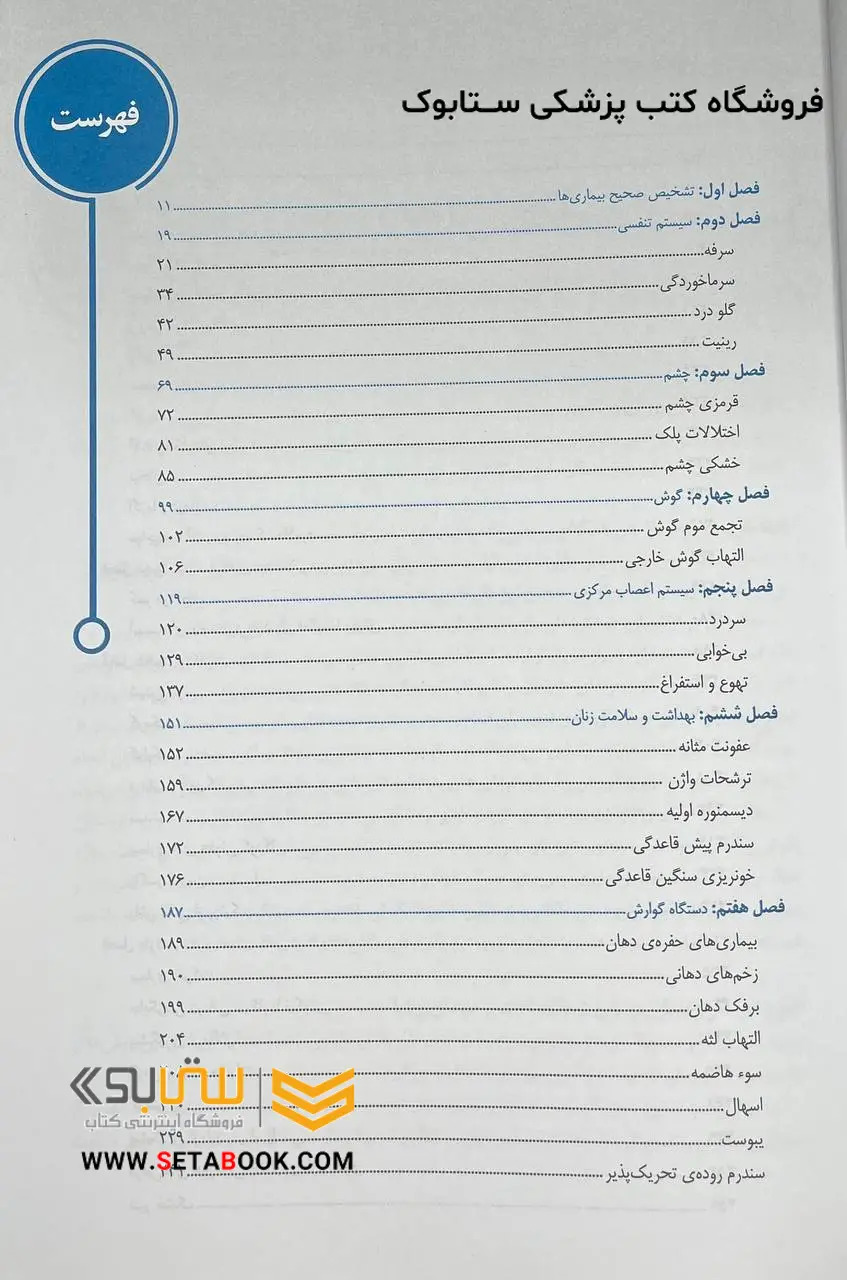 فروشگاه کتب پزشکی ستابوک
فهرست
فصل اول: تشخیص صحیح بیماری‌ها ۱۱
فصل دوم: سیستم تنفسی ۱۹
سرفه ۲۱
سرماخوردگی ۳۴
گلو درد ۴۲
رینیت ۴۹
فصل سوم: چشم ۶۹
قرمزی چشم ۷۲
اختلالات پلک ۸۱
خشکی چشم ۸۵
فصل چهارم: گوش ۹۹
تجمع موم گوش ۱۰۲
التهاب گوش خارجی ۱۰۶
فصل پنجم: سیستم اعصاب مرکزی ۱۱۹
سردرد ۱۲۰
بی‌خوابی ۱۲۹
تهوع و استفراغ ۱۳۷
فصل ششم: بهداشت و سلامت زنان ۱۵۱
عفونت مثانه ۱۵۲
ترشحات واژن ۱۵۹
دیسمنوره اولیه ۱۶۷
سندرم پیش قاعدگی ۱۷۲
خونریزی سنگین قاعدگی ۱۷۶
فصل هفتم: دستگاه گوارش ۱۸۷
بیماری‌های حفره‌ی دهان ۱۸۹
زخم‌های دهانی ۱۹۰
برفک دهان ۱۹۹
التهاب لثه ۲۰۴
سوء هاضمه
اسهال
یبوست ۲۲۹
سندرم روده‌ی تحریک‌پذیر
ستابوک
فروشگاه اینترنتی کتاب
WWW.SETABOOK.COM